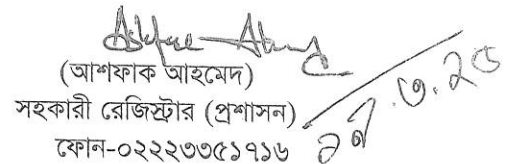 (আশফাক আহমেদ)
সহকারী রেজিস্ট্রার (প্রশাসন)
ফোন-০২২২৩৩৫১৭১৬